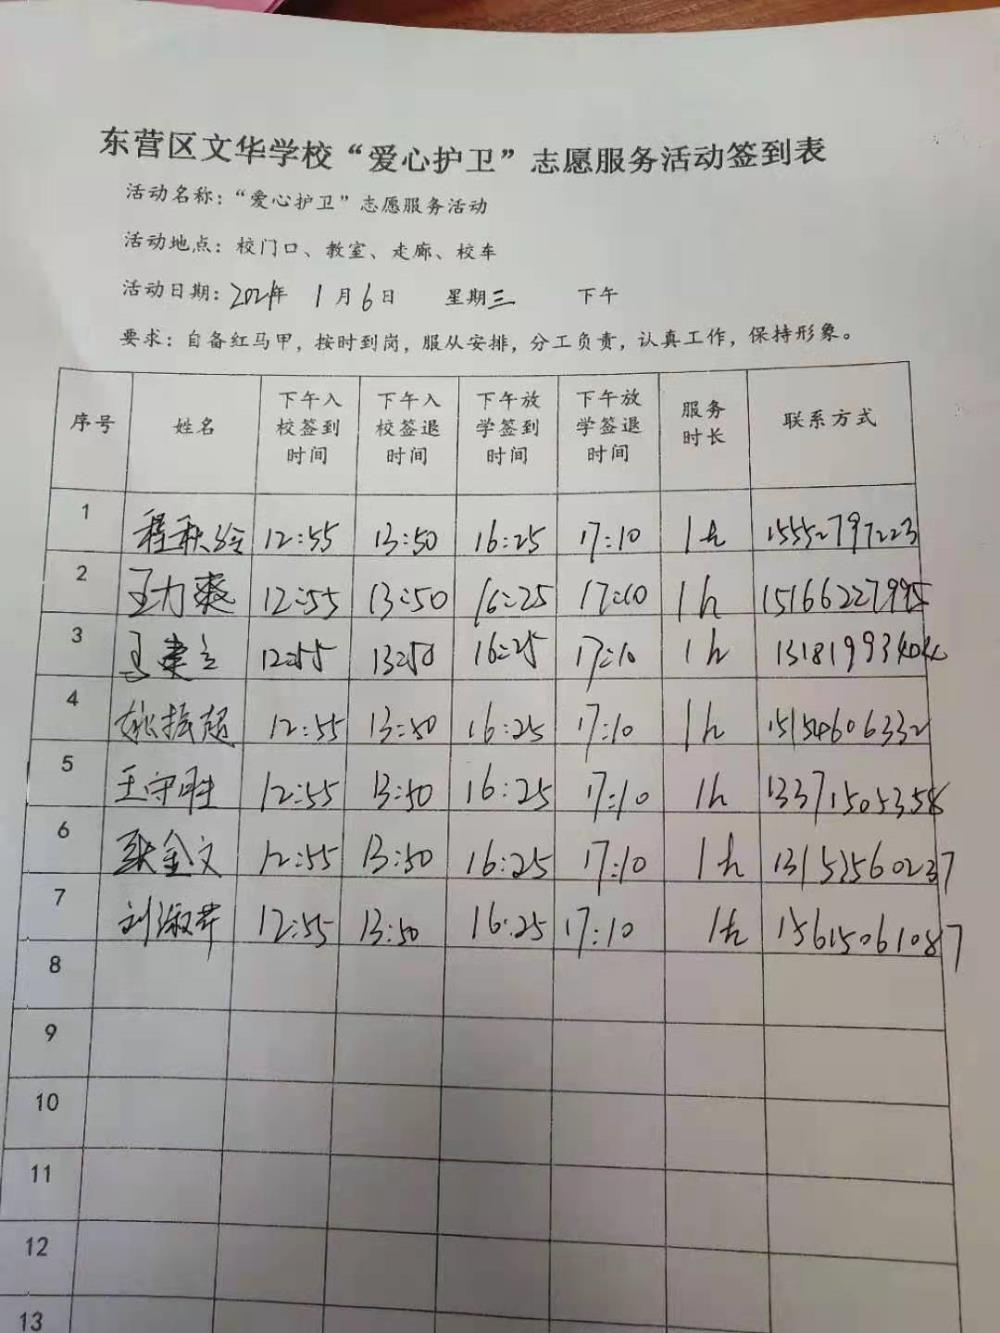 东营区文华学校“爱心护卫”志愿服务活动签到表
活动名称：“爱心护卫”志愿服务活动
活动地点：校门口、教室、走廊、校车
活动日期：2021年 1月6日 星期三 下午
要求：自备红马甲，按时到岗，服从安排，分工负责，认真工作，保持形象。
序号 姓名 下午入校签到时间 下午入校签退时间 下午放学签到时间 下午放学签退时间 服务时长 联系方式
1 程秋玲 12:55 13:50 16:25 17:10 1h 15552797223
2 王力爽 12:55 13:50 16:25 17:10 1h 15166227995
3 王建立 12:55 13:50 16:25 17:10 1h
4 姚振超 12:55 13:50 16:25 17:10 1h 15154606332
5 王守胜 12:55 13:50 16:25 17:10 1h 13371505358
6 耿金文 12:55 13:50 16:25 17:10 1h 13153560237
7 刘淑芹 12:55 13:50 16:25 17:10 1h 15615061087
8
9
10
11
12
13